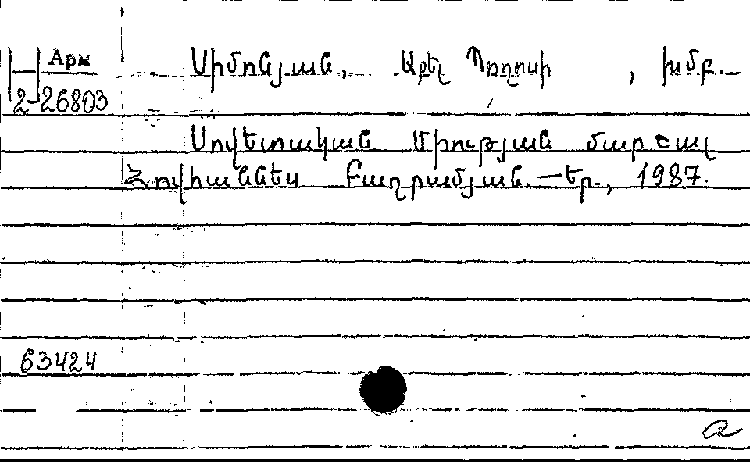 Арм
Սիմոնյան, Աբել Պողոսի , խմբ.—
2-26803
Սովետական Միության մարշալ
Հովհաննես Բաղրամյան.—Եր., 1987.
63424
a